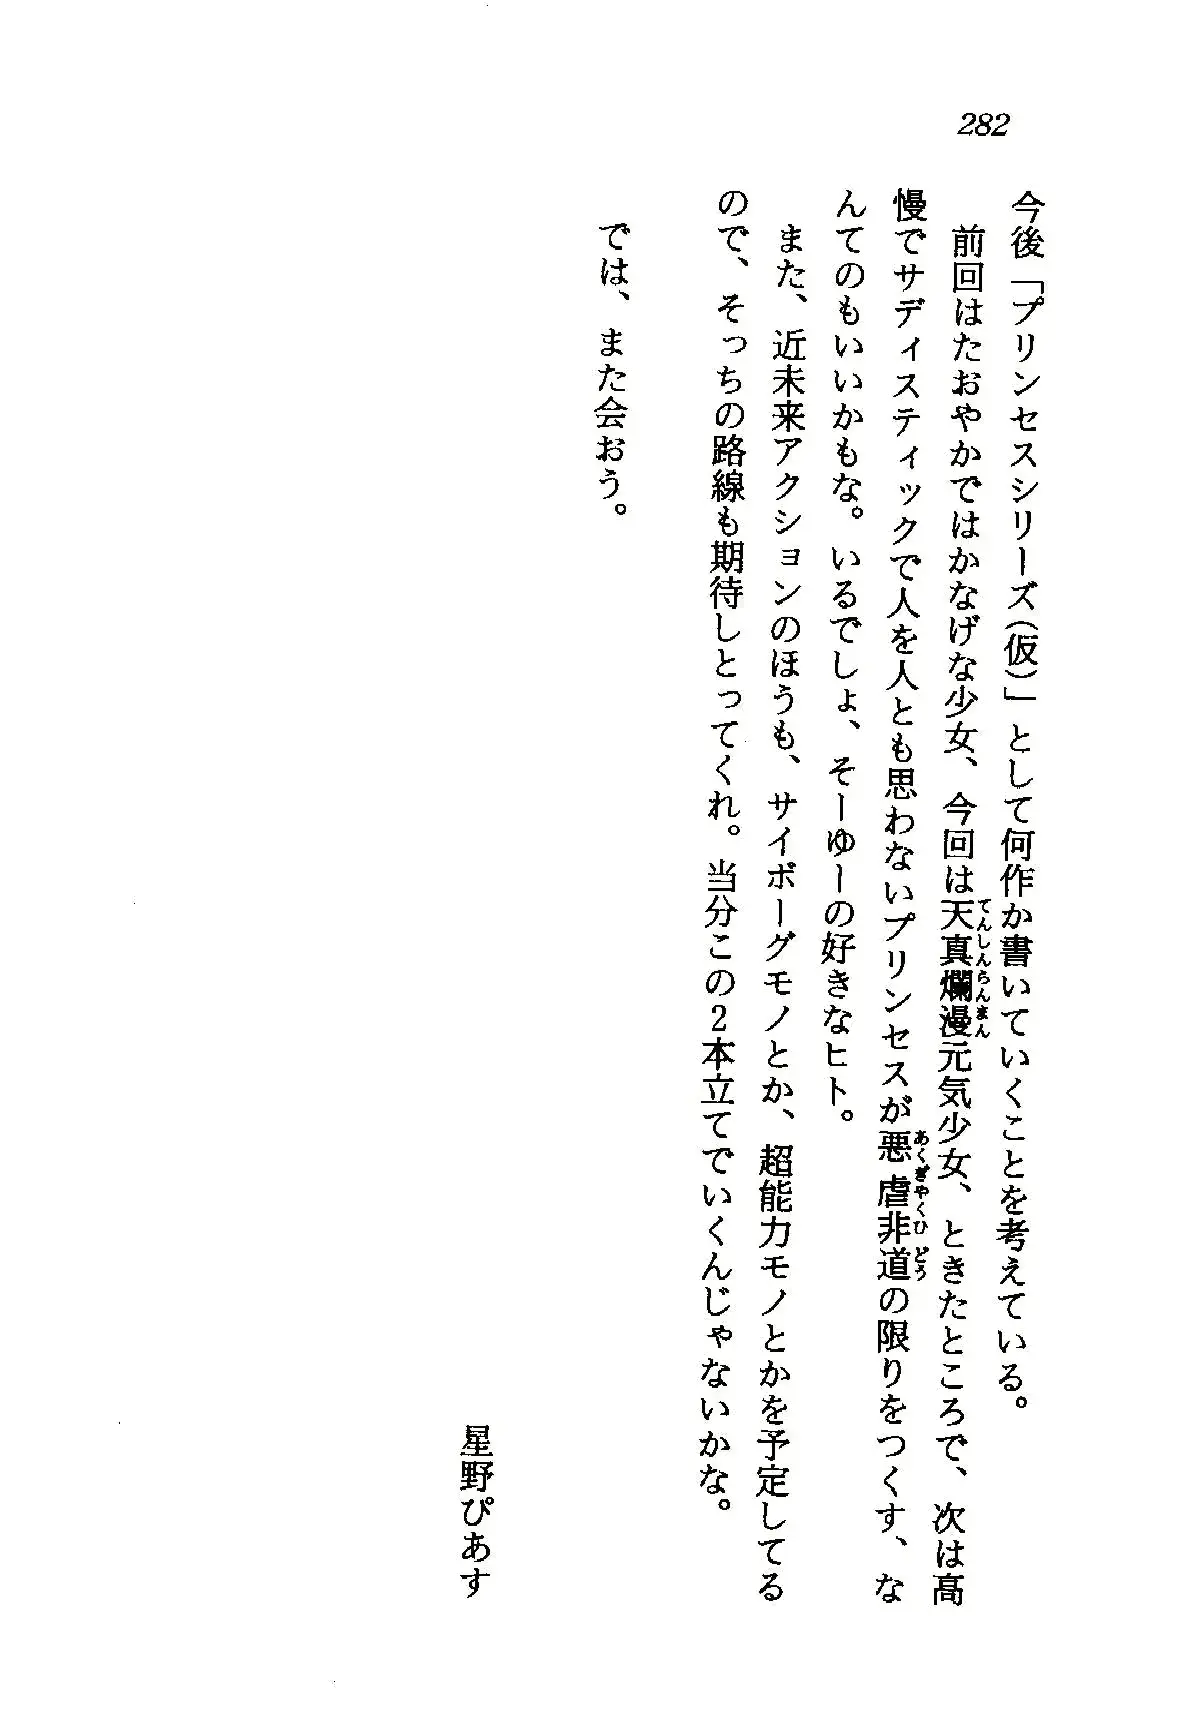 282
今後「プリンセスシリーズ(仮)」として何作か書いていくことを考えている。
前回はたおやかではかなげな少女、今回は天真爛漫元気少女、ときたところで、次は高
てんしんらんまん
慢でサディスティックで人を人とも思わないプリンセスが悪虐非道の限りをつくす、な
あくぎゃくひどう
んてのもいいかもな。いるでしょ、そーゆーの好きなヒト。
また、近未来アクションのほうも、サイボーグモノとか、超能力モノとかを予定してる
ので、そっちの路線も期待しとってくれ。当分この2本立てでいくんじゃないかな。
では、また会おう。
星野ぴあす